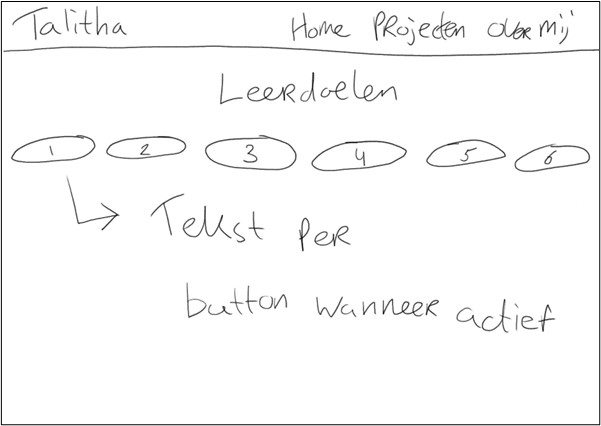 Talitha Home Projecten over mij
Leerdoelen
1 2 3 4 5 6
Tekst per
button wanneer actief